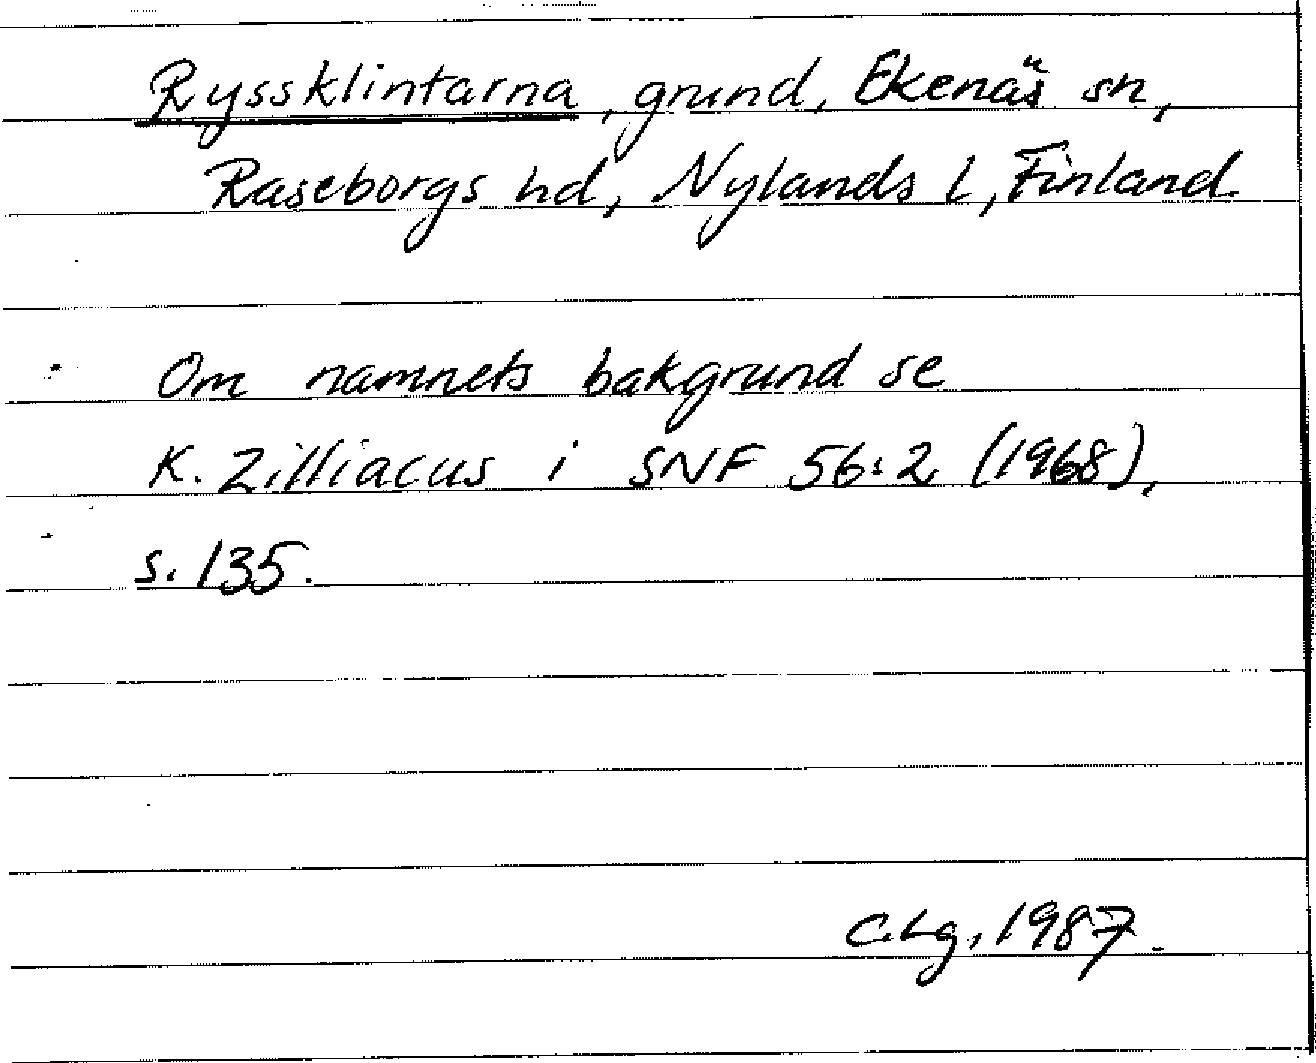 Ryssklintarna, grund, Ekenäs sn,
Raseborgs hd, Nylands l, Finland.
Om namnets bakgrund se
K. Zilliacus i SNF 56:2 (1968),
s. 135.
C.Lg, 1987.